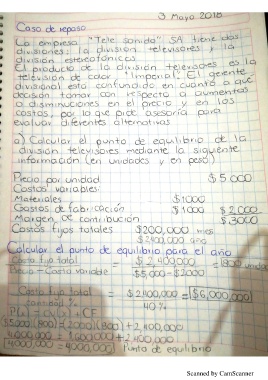 3 Mayo 2018
Caso de repaso
La empresa "Tele sonido" SA tiene dos
divisiones: la division televisores y la
división estereofonicos.
El producto de la división televisores es la
televisión de color, "Imperial". El gerente
divisional está confundido en cuanto a que
decisión tomar con respecto a aumentos
o disminuciones en el precio y en los
costos, por lo que pide asesoría para
evaluar diferentes alternativas
a) Calcular el punto de equilibrio de la
división televisores mediante la siguiente
información (en unidades y en pesos)
Precio por unidad $5000
Costos variables:
Materiales $1000
Gastos de fabricación $1000 $2000
Margen de contribución $3000
Costos fijos totales $200,000 mes
$2400,000 año
Calcular el punto de equilibrio para el año
Costo fijo total = $2'400,000 = 800 unidades
Precio - Costo variable $5,000-$2000
Costo fijo total = $2'400,000 = $6,000,000
40%
P(x) = CV(x) + CF
$5,000(800) = 2000(800) + 2,400,000
4,000,000 = 1,600,000 + 2,400,000
4,000,000 = 4,000,000 Punto de equilibrio
Scanned by CamScanner